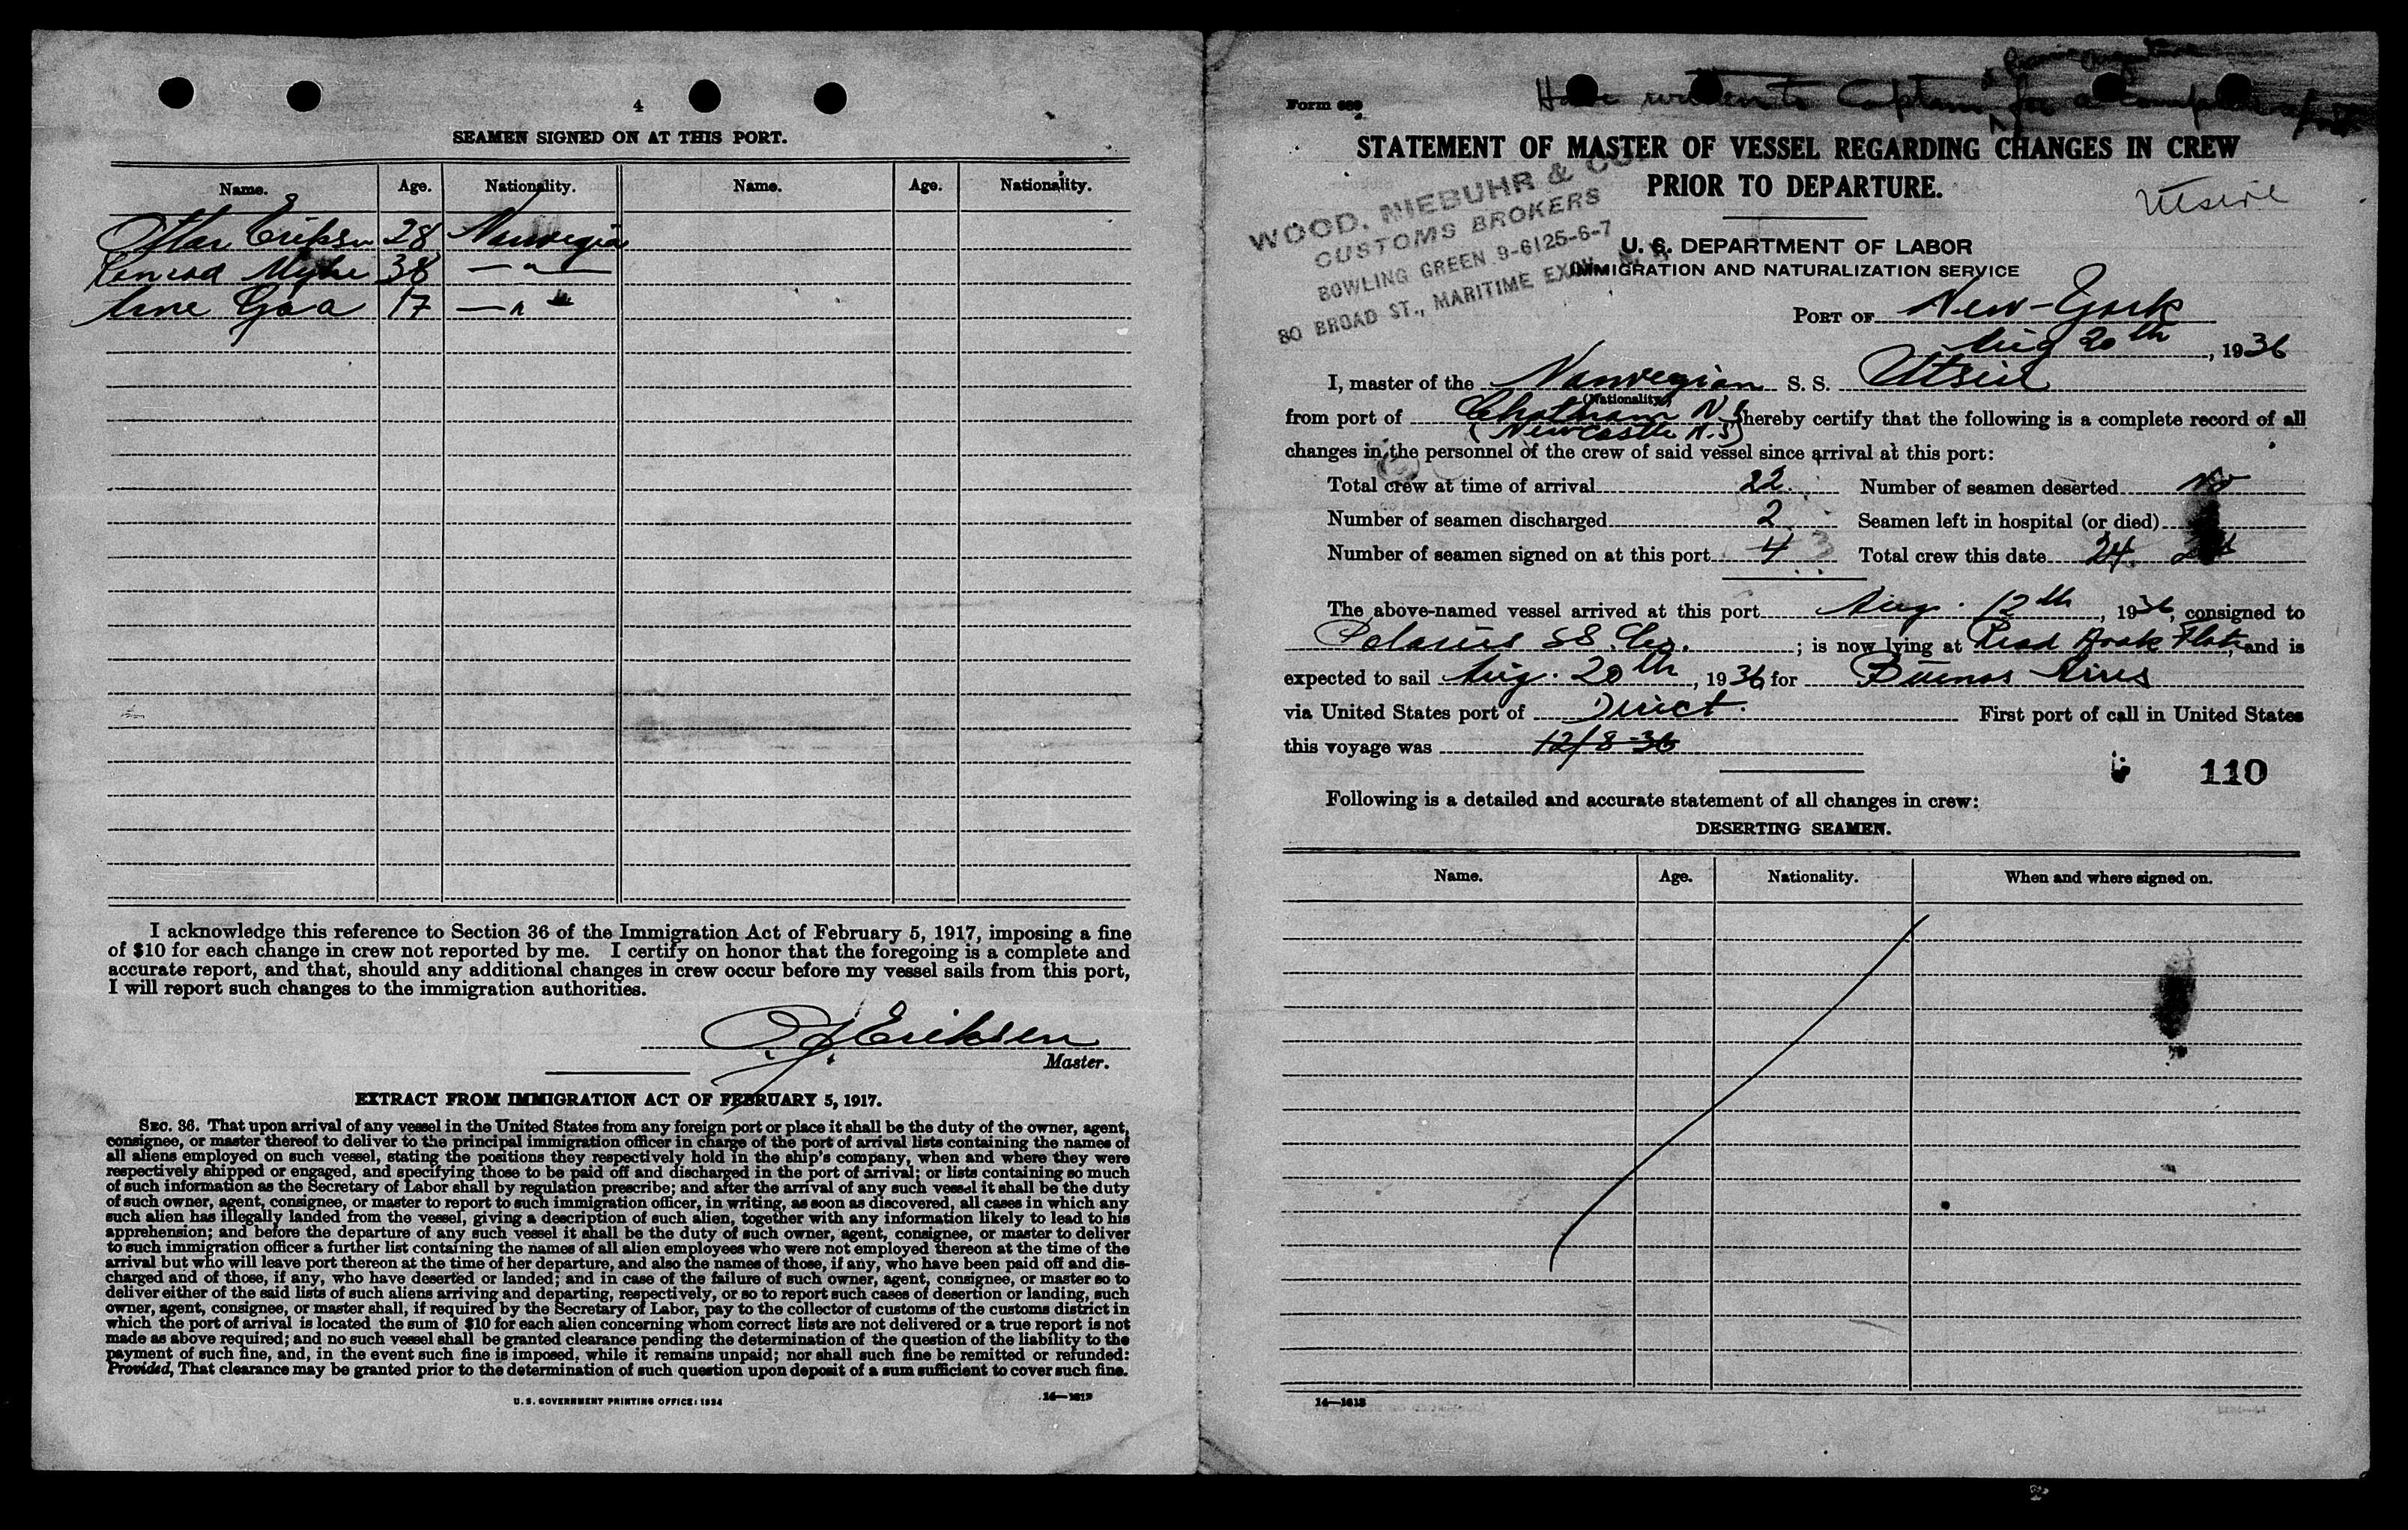 4
SEAMEN SIGNED ON AT THIS PORT.
Name. Age. Nationality. Name. Age. Nationality.
Ottar Eriksen 28 Norwegian
Konrad Myhre 38 — " —
Arne Goa 17 — " —
I acknowledge this reference to Section 36 of the Immigration Act of February 5, 1917, imposing a fine
of $10 for each change in crew not reported by me. I certify on honor that the foregoing is a complete and
accurate report, and that, should any additional changes in crew occur before my vessel sails from this port,
I will report such changes to the immigration authorities.
Eriksen
Master.
EXTRACT FROM IMMIGRATION ACT OF FEBRUARY 5, 1917.
SEC. 36. That upon arrival of any vessel in the United States from any foreign port or place it shall be the duty of the owner, agent,
consignee, or master thereof to deliver to the principal immigration officer in charge of the port of arrival lists containing the names of
all aliens employed on such vessel, stating the positions they respectively hold in the ship's company, when and where they were
respectively shipped or engaged, and specifying those to be paid off and discharged in the port of arrival; or lists containing so much
of such information as the Secretary of Labor shall by regulation prescribe; and after the arrival of any such vessel it shall be the duty
of such owner, agent, consignee, or master to report to such immigration officer, in writing, as soon as discovered, all cases in which any
such alien has illegally landed from the vessel, giving a description of such alien, together with any information likely to lead to his
apprehension; and before the departure of any such vessel it shall be the duty of such owner, agent, consignee, or master to deliver
to such immigration officer a further list containing the names of all alien employees who were not employed thereon at the time of the
arrival but who will leave port thereon at the time of her departure, and also the names of those, if any, who have been paid off and dis-
charged and of those, if any, who have deserted or landed; and in case of the failure of such owner, agent, consignee, or master so to
deliver either of the said lists of such aliens arriving and departing, respectively, or so to report such cases of desertion or landing, such
owner, agent, consignee, or master shall, if required by the Secretary of Labor, pay to the collector of customs of the customs district in
which the port of arrival is located the sum of $10 for each alien concerning whom correct lists are not delivered or a true report is not
made as above required; and no such vessel shall be granted clearance pending the determination of the question of the liability to the
payment of such fine, and, in the event such fine is imposed, while it remains unpaid; nor shall such fine be remitted or refunded:
Provided, That clearance may be granted prior to the determination of such question upon deposit of a sum sufficient to cover such fine.
U. S. GOVERNMENT PRINTING OFFICE: 1934
Form 689
Have written to Captain for a complete
STATEMENT OF MASTER OF VESSEL REGARDING CHANGES IN CREW
PRIOR TO DEPARTURE.
Utsire
WOOD, NIEBUHR & CO
CUSTOMS BROKERS
BOWLING GREEN 9-6125-6-7
80 BROAD ST., MARITIME EXCH.
U. S. DEPARTMENT OF LABOR
IMMIGRATION AND NATURALIZATION SERVICE
PORT OF New-York
Aug 20th, 1936
I, master of the Norwegian S. S. Utsire
(Nationality)
from port of Chatham N.B hereby certify that the following is a complete record of all
(Newcastle N.B)
changes in the personnel of the crew of said vessel since arrival at this port:
Total crew at time of arrival 22. Number of seamen deserted no
Number of seamen discharged 2 Seamen left in hospital (or died)
Number of seamen signed on at this port 4 3 Total crew this date 24.
The above-named vessel arrived at this port Aug. 12th, 1936, consigned to
SS. Co.; is now lying at Read Hook Flats, and is
expected to sail Aug. 20th, 1936, for Buenos Aires
via United States port of Direct. First port of call in United States
this voyage was 12/8-36
110
Following is a detailed and accurate statement of all changes in crew:
DESERTING SEAMEN.
Name. Age. Nationality. When and where signed on.